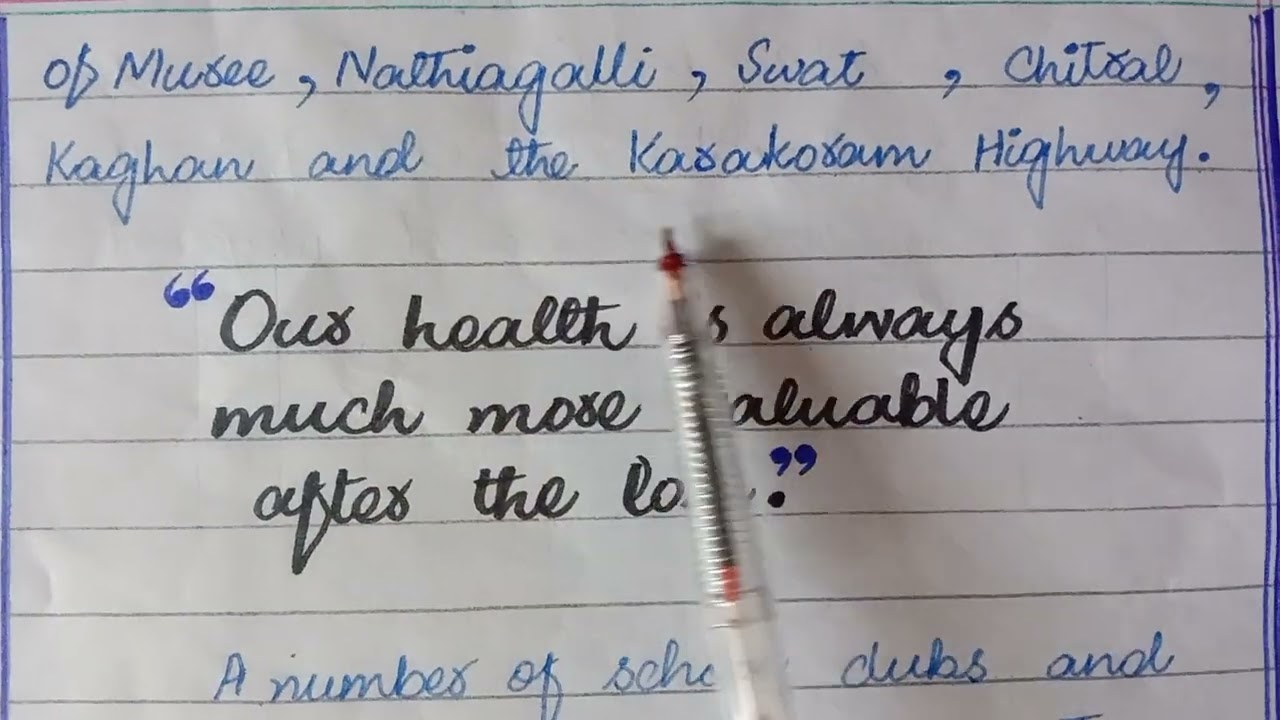 of Murree, Nathiagalli, Swat, Chitral,
Kaghan and the Karakoram Highway.
“Our health is always
much more valuable
after the
A number of clubs and